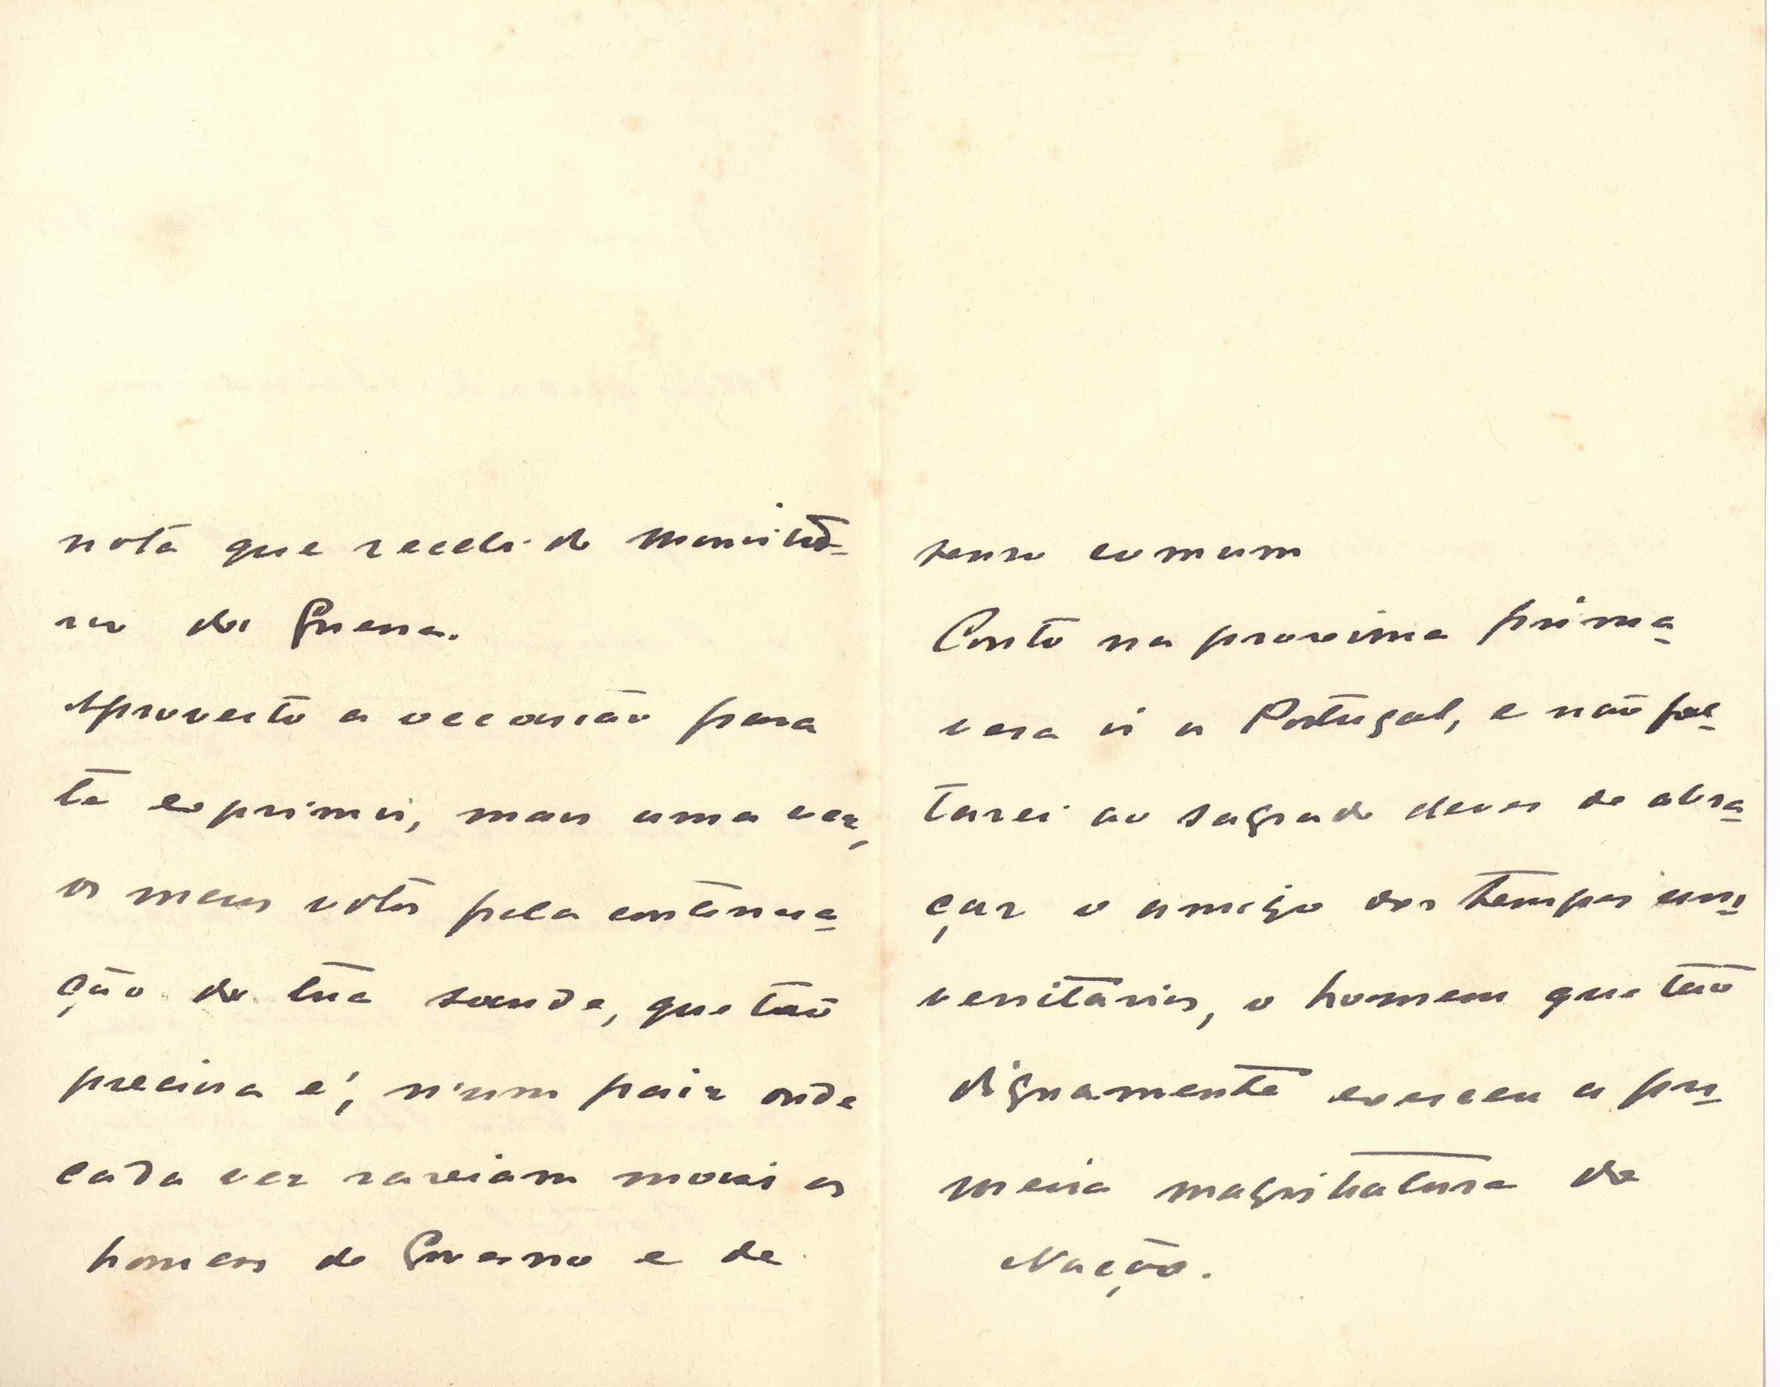 nota que recebi do Ministe-
rio da Guerra.
Aproveito a occasião para
te exprimir, mais uma vez,
os meus votos pela continua-
ção da tua saude, que tão
precisa é, n'um paiz onde
cada vez rareiam mais os
homens de Governo e de
senso comum
Conto na proxima prima-
vera ir a Portugal, e não fal-
tarei ao sagrado dever de abra-
çar o amigo dos tempos uni-
versitários, o homem que tão
dignamente exerceu a pri-
meira magistratura da
Nação.